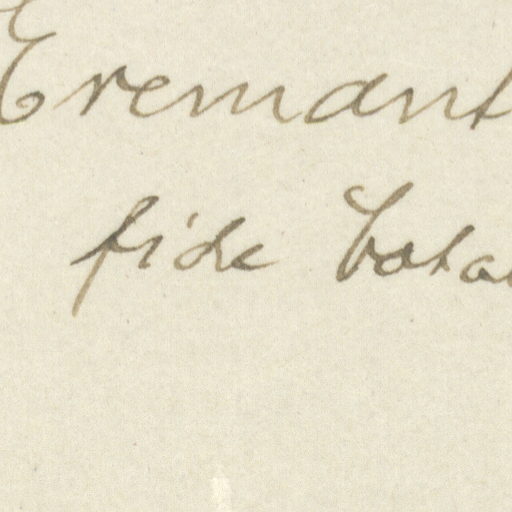 Eremant
fide Cata